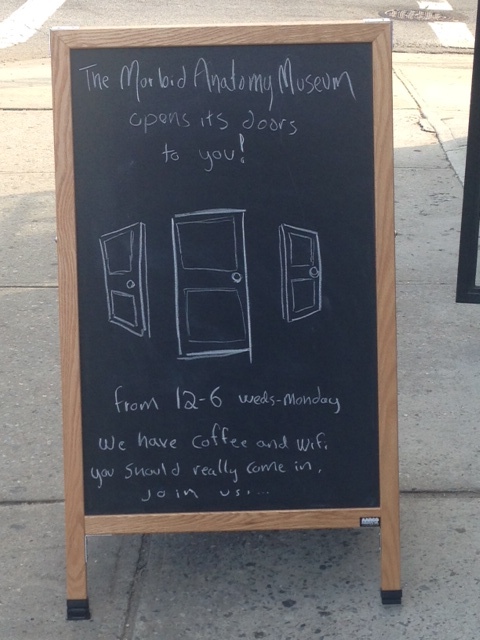 The Morbid Anatomy Museum
opens its doors
to you!
from 12-6 weds-Monday
We have coffee and wifi.
you should really come in.
join us....